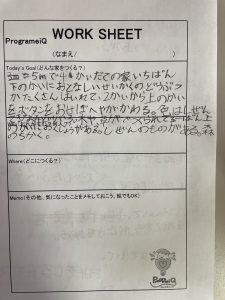 ProgrameiQ WORK SHEET
(なまえ/ )
Today's Goal(どんな家をつくる？)
5mで4かいだての家いちばん
下のかいにおとなしいせいかくのどうぶつ
がたくさん はいれて、2かいから上のかい
をボタンをおせばへやがかわる。色はしぜん
しぜんのものが ある。森
のちかく。
Where(どこにつくる？)
Memo(その他、気になったことをメモしておこう。絵でもOK)